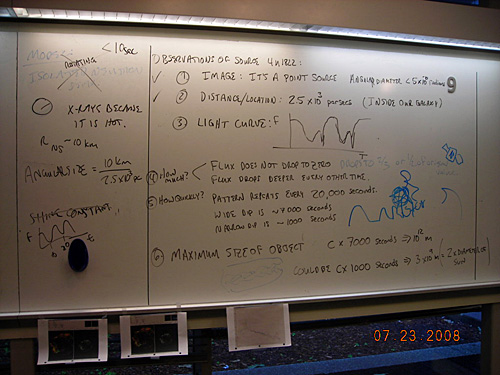 MODEL:
ROTATING
<10sec
X-RAYS BECAUSE
IT IS HOT.
R NS ~10 km
ANGULAR SIZE = 10 km
2.5 x10³ pc
SHINE CONSTANT
F
OBSERVATIONS OF SOURCE 4u1822:
✓ ① IMAGE: IT'S A POINT SOURCE ANGULAR DIAMETER < 5x10
✓ ② DISTANCE/LOCATION: 2.5 x 10³ parsecs (INSIDE OUR GALAXY)
③ LIGHT CURVE: F
T
④ HOW MUCH? FLUX DOES NOT DROP TO ZERO
FLUX DROPS DEEPER EVERY OTHER TIME.
⑤ HOW QUICKLY? PATTERN REPEATS EVERY 20,000 SECONDS.
WIDE DIP IS ~7000 seconds
NARROW DIP IS ~1000 seconds
⑥ MAXIMUM SIZE OF OBJECT C x 7000 seconds ⇒ 10¹² m
COULD BE C x 1000 seconds ⇒ 3 x 10 m (= 2x DIAMETER OF SUN)
9
07 23 2008